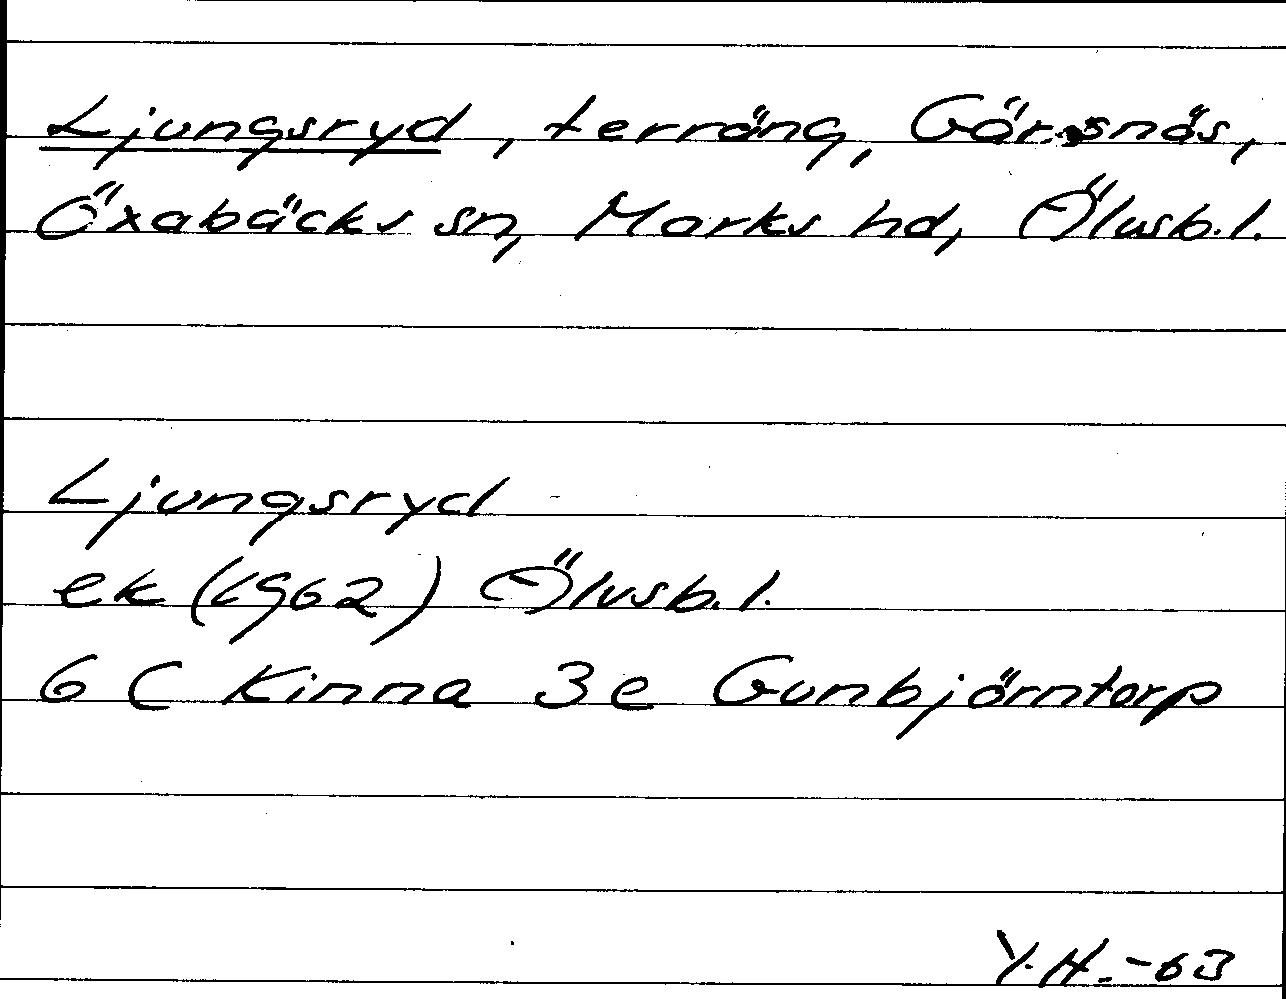 Ljungsryd, terräng, Görsnäs,
Öxabäcks sn, Marks hd, Älvsb.l.
Ljungsryd
ek (1962) Älvsb.l.
6 C Kinna 3e Gunbjörntorp
Y.H. -63